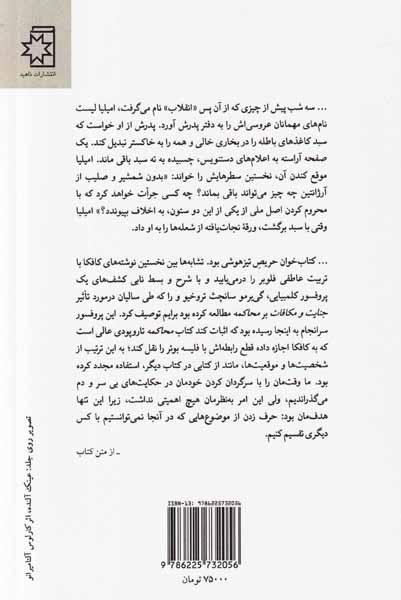 انتشارات ناهید
... سه شب پیش از چیزی که از آن پس «انقلاب» نام می‌گرفت، امیلیا لیست
نام‌های مهمانان عروسی‌اش را به دفتر پدرش آورد. پدرش از او خواست که
سبد کاغذهای باطله را در بخاری خالی و همه را به خاکستر تبدیل کند. یک
صفحه آراسته به اعلام‌های دستنویس، چسبیده به ته سبد باقی ماند. امیلیا
موقع کندن آن، نخستین سطرهایش را خواند: «بدون شمشیر و صلیب از
آرژانتین چه چیز می‌تواند باقی بماند؟ چه کسی جرأت خواهد کرد که با
محروم کردن اصل ملی از یکی از این دو ستون، به اخلاف بپیوندد؟» امیلیا
وقتی با سبد برگشت، ورقهٔ نجات‌یافته از شعله‌ها را به او داد.
... کتاب‌خوان حریص تیزهوشی بود. تشابه‌ها بین نخستین نوشته‌های کافکا با
تربیت عاطفی فلوبر را درمی‌یابید و با شرح و بسط نابی کشف‌های یک
پروفسور کلمبیایی، گی‌یرمو سانچث تروخیو و را که طی سالیان درمورد تأثیر
جنایت و مکافات بر محاکمه مطالعه کرده بود برایم توصیف کرد. این پروفسور
سرانجام به اینجا رسیده بود که اثبات کند کتاب محاکمه تاروپودی عالی است
که به کافکا اجازه داده قطع رابطه‌اش با فلیسه بوئر را نقل کند؛ به این ترتیب از
شخصیت‌ها و موقعیت‌ها، مانند از کتابی در کتاب دیگر، استفاده مجدد کرده
بود. ما وقت‌مان را با سرگردان کردن خودمان در حکایت‌های بی سر و دم
می‌گذراندیم، ولی این امر به‌نظرمان هیچ اهمیتی نداشت، زیرا این تنها
هدف‌مان بود: حرف زدن از موضوع‌هایی که در آنجا نمی‌توانستیم با کس
دیگری تقسیم کنیم.
ـ از متن کتاب
تصویر روی جلد: عینک آلنده، اثر کارلوس آلتامیرانو
ISBN-13: 9786225732056
9 786225 732056
۷۵۰۰۰ تومان